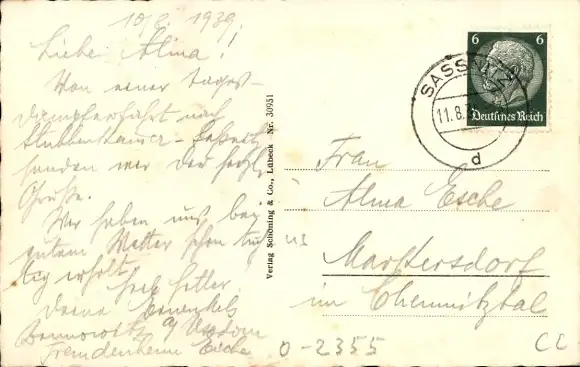 10.8. 1939.
Liebe Alma!
Von einer Tages-
dampferfahrt nach
Stubbenkammer - Sassnitz
senden wir Dir herzl.
Grüße.
Wir haben uns bei
gutem Wetter schon tüch
tig erholt.
Heil Hitler.
Deine
a/ Usedom
Fremdenheim Eiche
Verlag Schöning & Co., Lübeck Nr. 30951
6 6
Deutsches Reich
SASSNITZ
11.8.39
d
Frau
Alma Esche
Markersdorf
im Chemnitztal
0-2355
CC